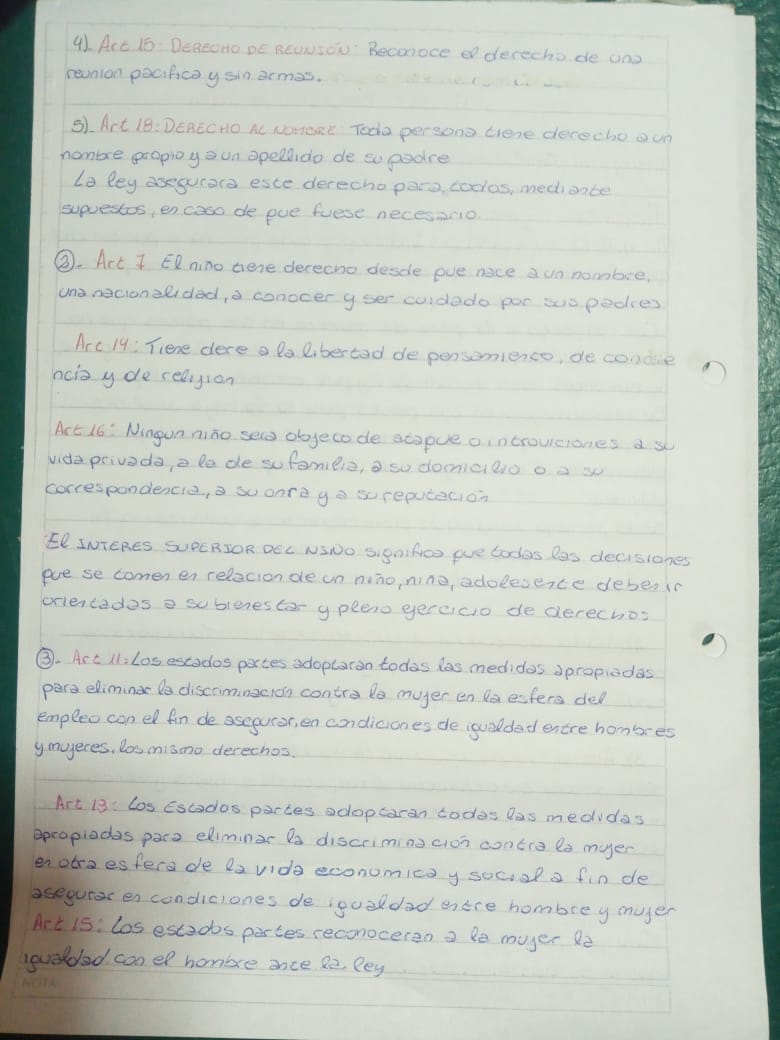 4). Art 15: DERECHO DE REUNIÓN: Reconoce el derecho de una
reunion pacifica y sin armas.
5). Art 18: DERECHO AL NOMBRE Toda persona tiene derecho a un
nombre propio y a un apellido de su padre
La ley asegurara este derecho para todos, mediante
supuestos, en caso de que fuese necesario.
②. Art 7 El niño tiene derecho desde que nace a un nombre,
una nacionalidad, a conocer y ser cuidado por sus padres
Art 14: Tiene dere a la libertad de pensamiento, de concie
ncia y de religion
Art 16: Ningun niño sera objeto de ataque o introviciones a su
vida privada, a la de su familia, a su domicilio o a su
correspondencia, a su onra y a su reputación
El INTERES SUPERIOR DEL NIÑO significa que todas las decisiones
que se tomen en relacion de un niño, niña, adolesente deben ir
orientadas a su bienestar y pleno ejercicio de derechos
③. Art 11: Los estados partes adoptaran todas las medidas apropiadas
para eliminar la discriminación contra la mujer en la esfera del
empleo con el fin de asegurar, en condiciones de igualdad entre hombres
y mujeres, los mismo derechos.
Art 13: Los Estados partes adoptaran todas las medidas
apropiadas para eliminar la discriminación contra la mujer
en otra esfera de la vida economica y social a fin de
asegurar en condiciones de igualdad entre hombre y mujer
Art 15: Los estados partes reconoceran a la mujer la
igualdad con el hombre ante la ley
NOTA